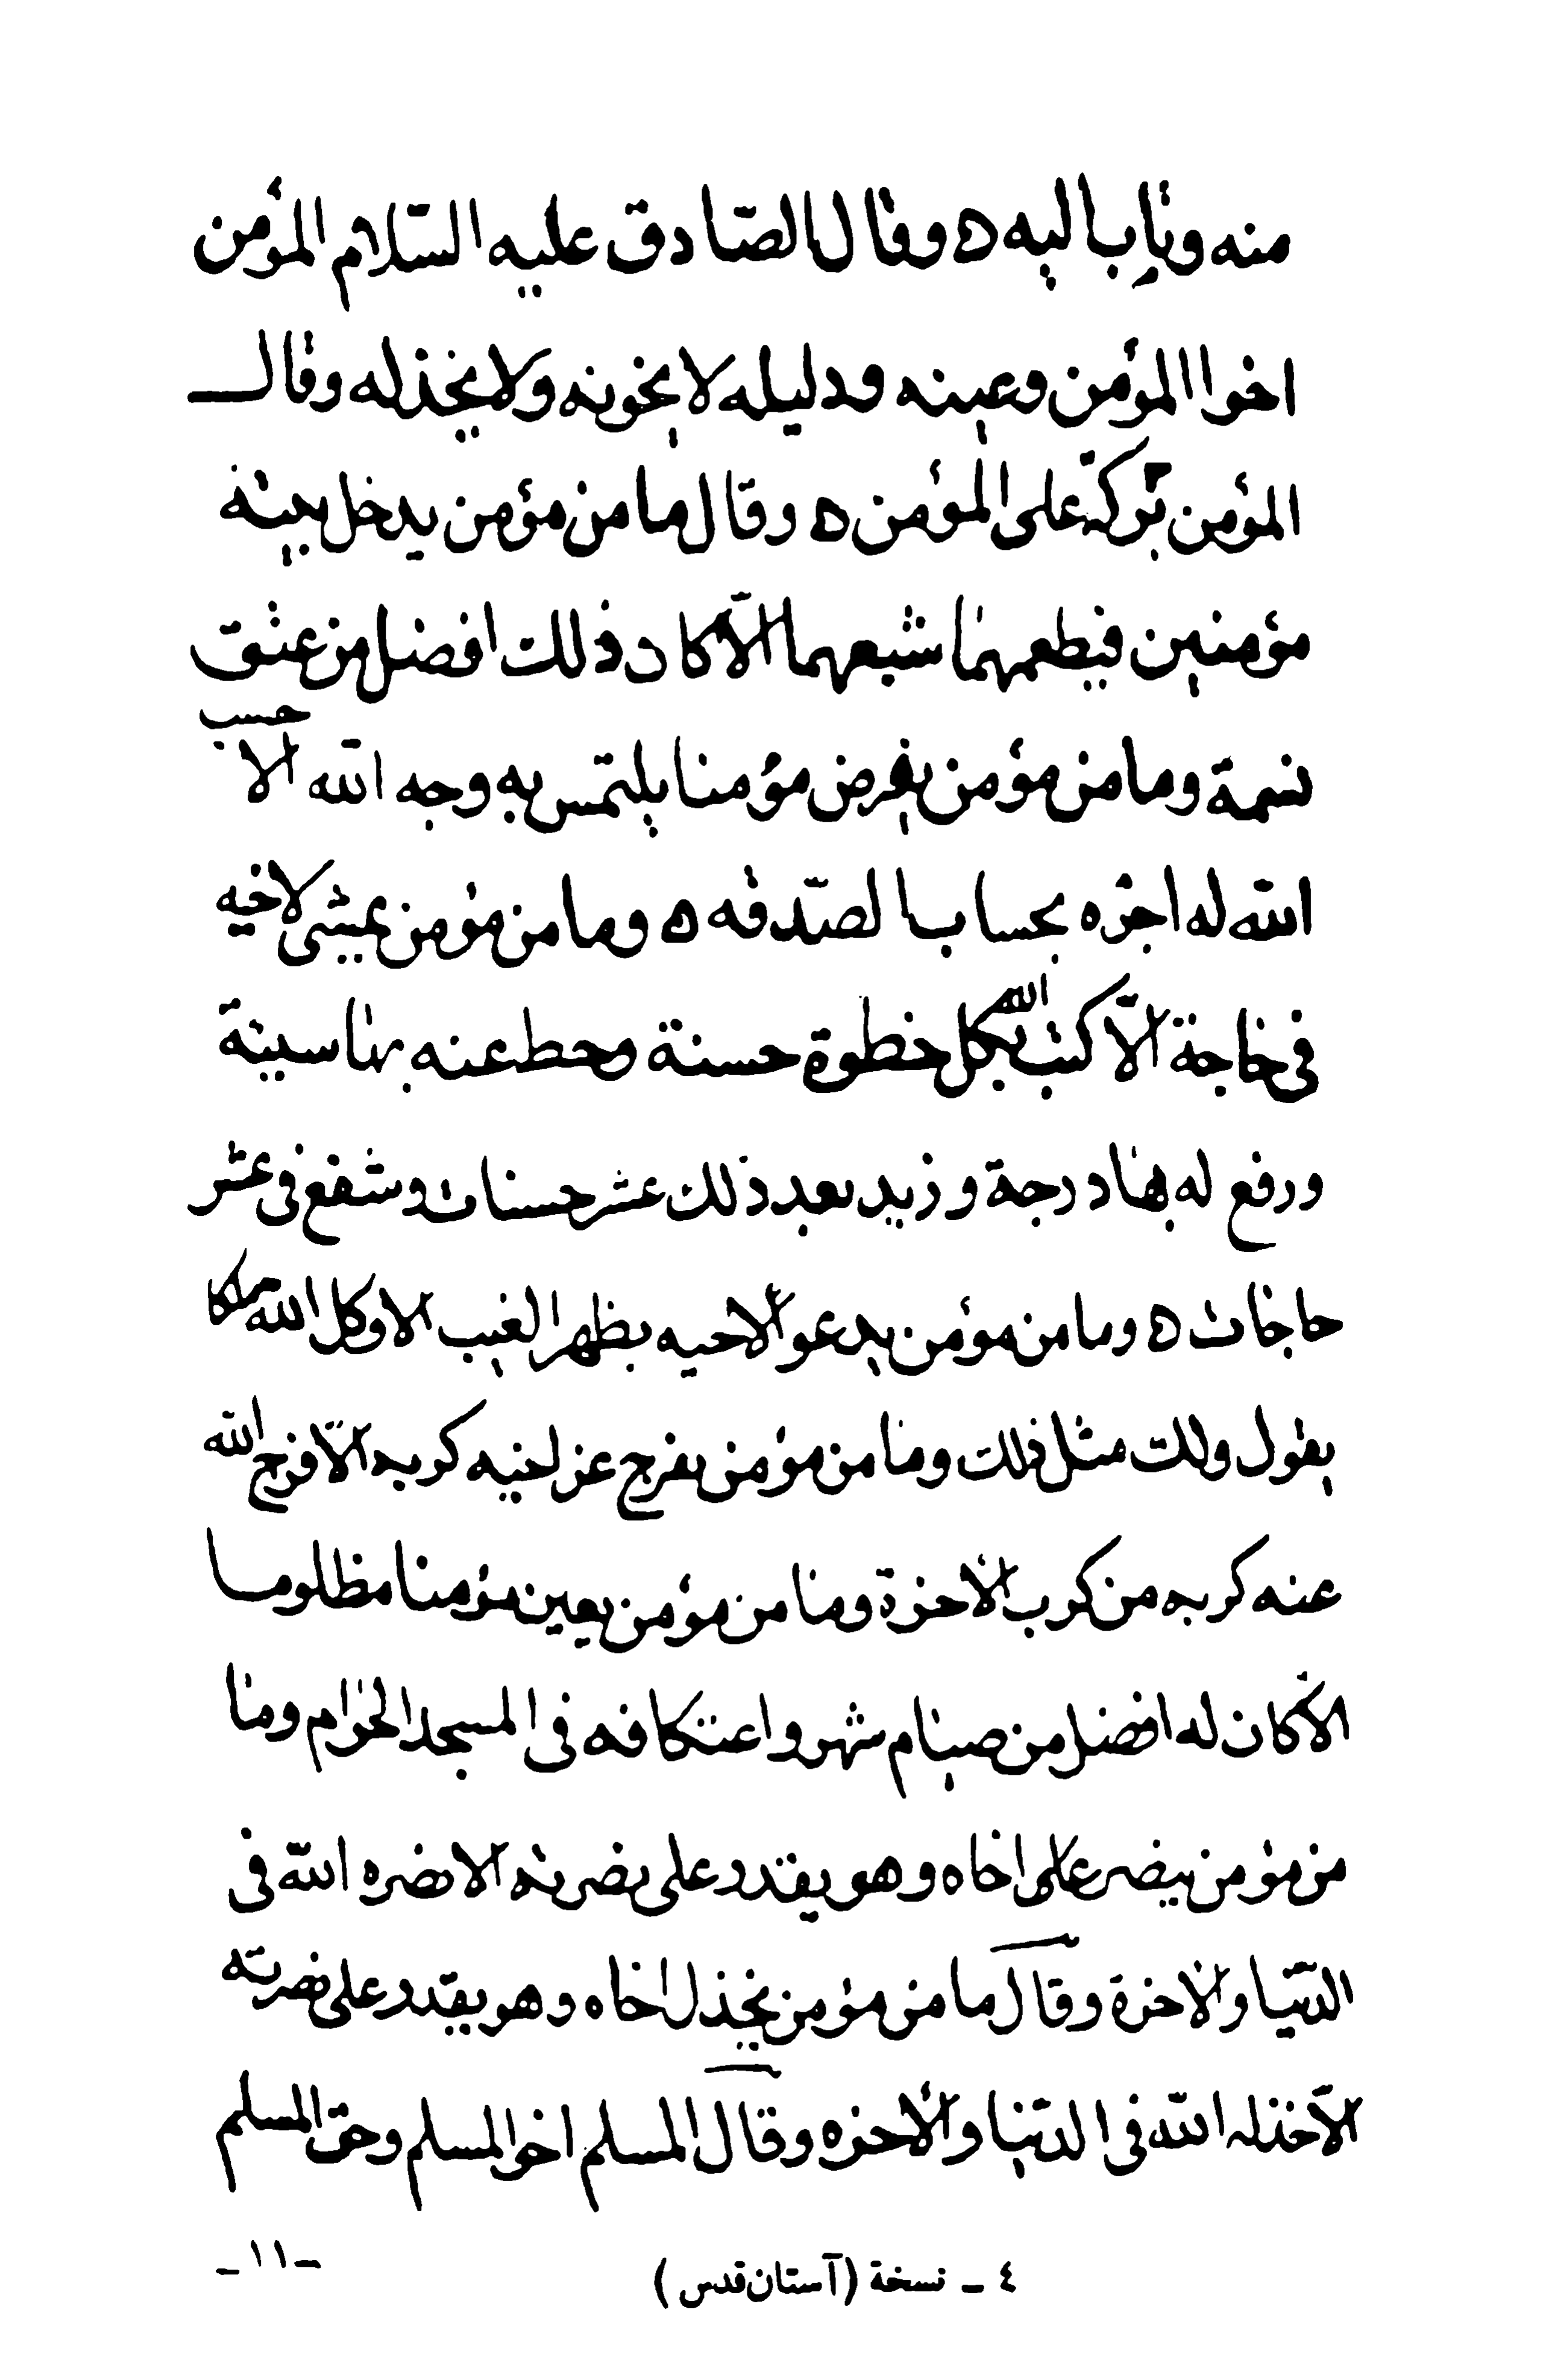 منه وتاب اليه ه وقال الصّادق عليه السّلام المؤمن
اخوا المؤمن وعينه ودليله لا يخونه ولا يخذله وقال
المؤمن بركة على المؤمن ه وقال ما من مؤمن يدخل بيته
مؤمنين فيطعمهما شبعهما الّا كان ذلك افضل من عتق
نسمة وما من مؤمن يقرض مؤمنا يلتمس به وجه الله الا حسب
الله له اجره بحساب الصّدقه ه وما من مؤمن يمشى لاخيه
فى حاجة الّا كتب الله بكل خطوة حسنة وحط عنه بها سيئة
ورفع له بها درجة وزيد بعد ذلك عشر حسنات وشفع فى عشر
حاجات ه وما من مؤمن يدعو لاخيه بظهر الغيب الا وكل الله ملكا
يقول ولك مثل ذلك وما من مؤمن يفرج عن اخيه كربه الّا فرج الله
عنه كربه من كرب الأخرة وما من مؤمن يعين مؤمنا مظلوما
الّا كان له افضل من صيام شهر واعتكافه فى المسجد الحرام وما
من مؤمن ينصر اخاه وهو يقدر على نصرته الا نصره الله فى
الدّنيا والأخرة وقال ما من مؤمن يخذل اخاه وهو يقدر على نصرته
الّا خذله الله فى الدّنيا والأخره وقال المسلم اخو المسلم وحق المسلم
٤ ـ نسخة (آستان قدس)
ـ١١ـ